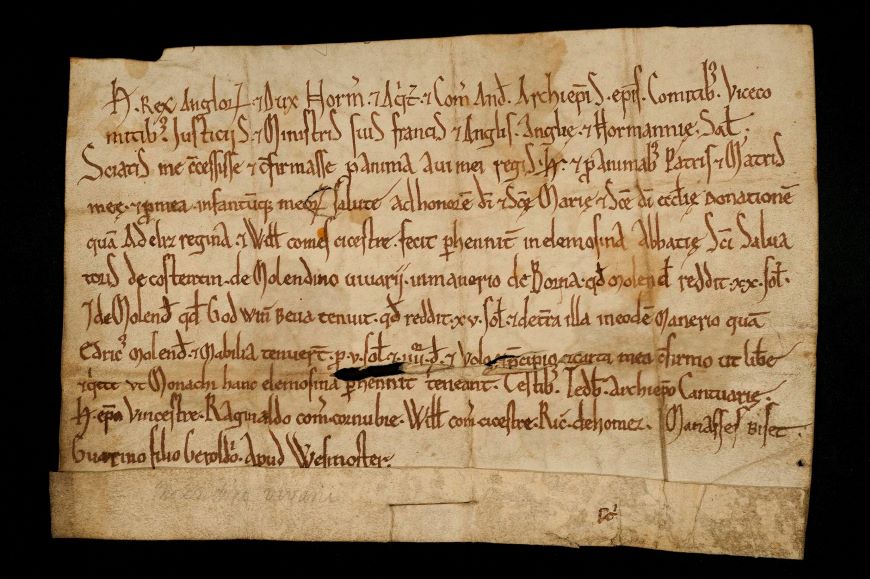 H. Rex Angloꝝ ⁊ Dux Norm̄ ⁊ Aq̄t̄ ⁊ Com̄ And̄. Archiep̄is . ep̄is . Comitibꝫ . Viceco
mitibꝫ . Justiciis . ⁊ Ministris suis francis ⁊ Anglis . Anglie ⁊ Normannie . Sal̄.
Sciatis me c̄cessisse ⁊ c̄firmasse p anima aui mei regis . H . ⁊ p animabꝫ Patris ⁊ Matris
meę . ⁊ p mea . infantūqꝫ meoꝝ salute ad honorē di ⁊ Scę Marię ⁊ Scē di ecclię donationē
quā Adeliz regina . ⁊ Will̄ comes cicestre . fecit phennit̄ in elemosina Abbatię Sc̄i Salua
toris de costentin . de Molendino uiuarij . in manerio de Borna . qd̄ molend̄ reddit . xx . sol̄.
⁊ de Molend̄ qd̄ Godwin̄ Beua tenuit . qd̄ reddit . xv . sol̄ . ⁊ de tr̄a illa in eodē Manerio quā
Edricꝫ molend̄ . ⁊ Mabilia tenuert̄ . p . v . sol̄ . ⁊ . iiii . d̄ . ⁊ Volo ⁊ p̄cipio ⁊ carta mea c̄firmo ut libe
⁊ ut Monachi hanc elemosinā phennit̄ teneant . Testibꝫ . Tedb̄ . archiepō Cantuarię .
H . ep̄o Vincestre . Raginaldo com̄ . cornubie . Will̄ com̄ . cicestre . Ric̄ . de homez . Manasses Biset .
Guarino filio Geroldi . Apud Wesmoster .
uiuarii